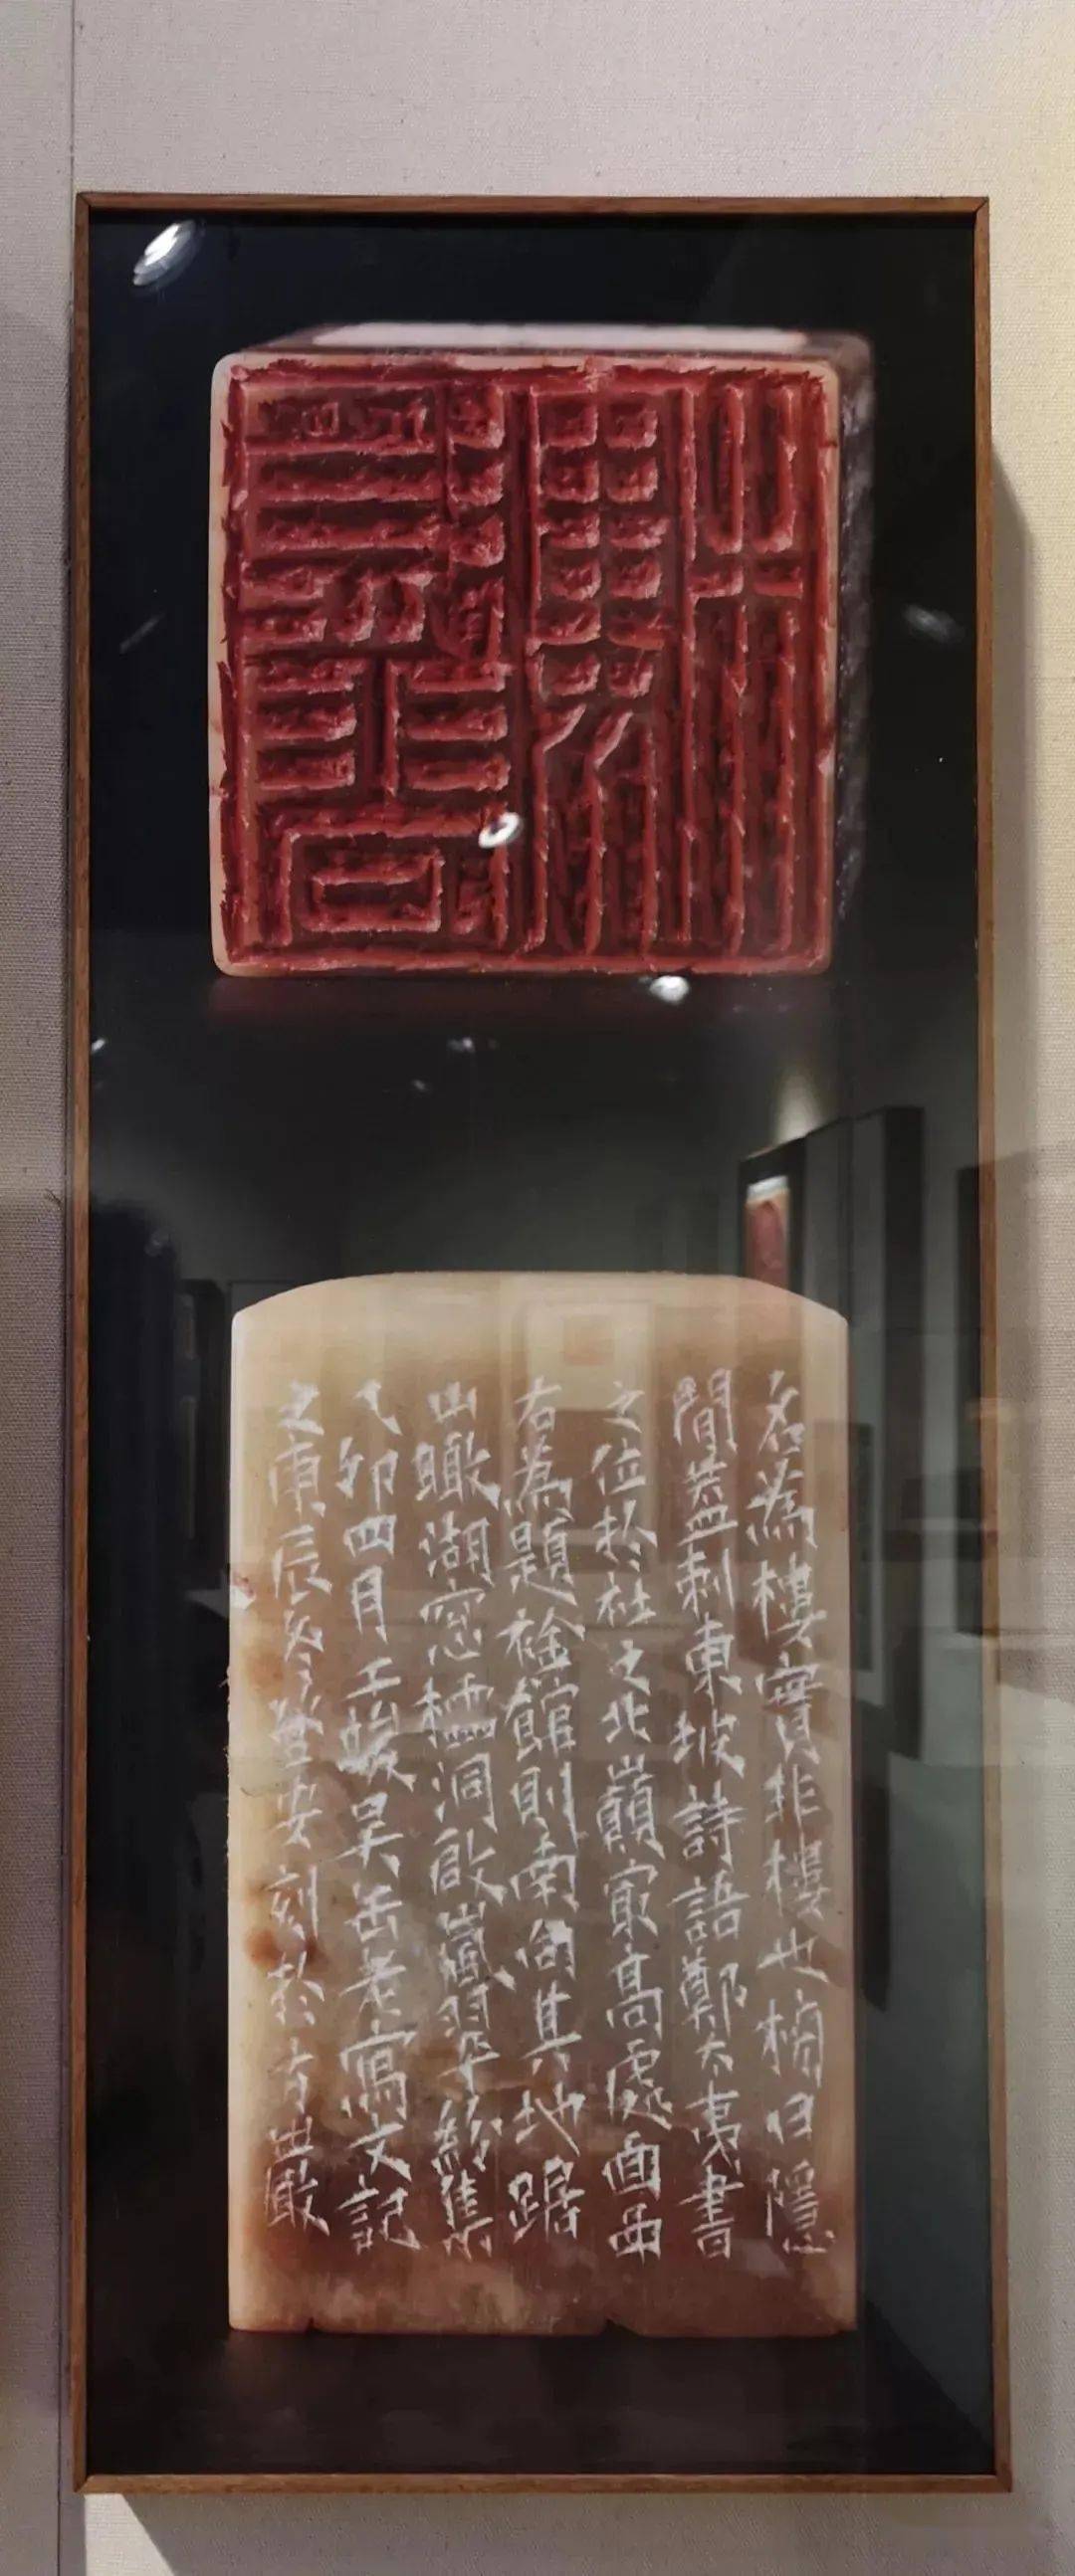 名為樓實非樓也楣曰隱
閒蓋刺東坡詩語鄭太夷書
之位於社之北巔冣高處面西
右為題襟館則南向其地踞
山瞰湖窓櫺洞啟嵐翠紛集
乙卯四月吴缶老寫文記
之庚辰冬登安刻於方